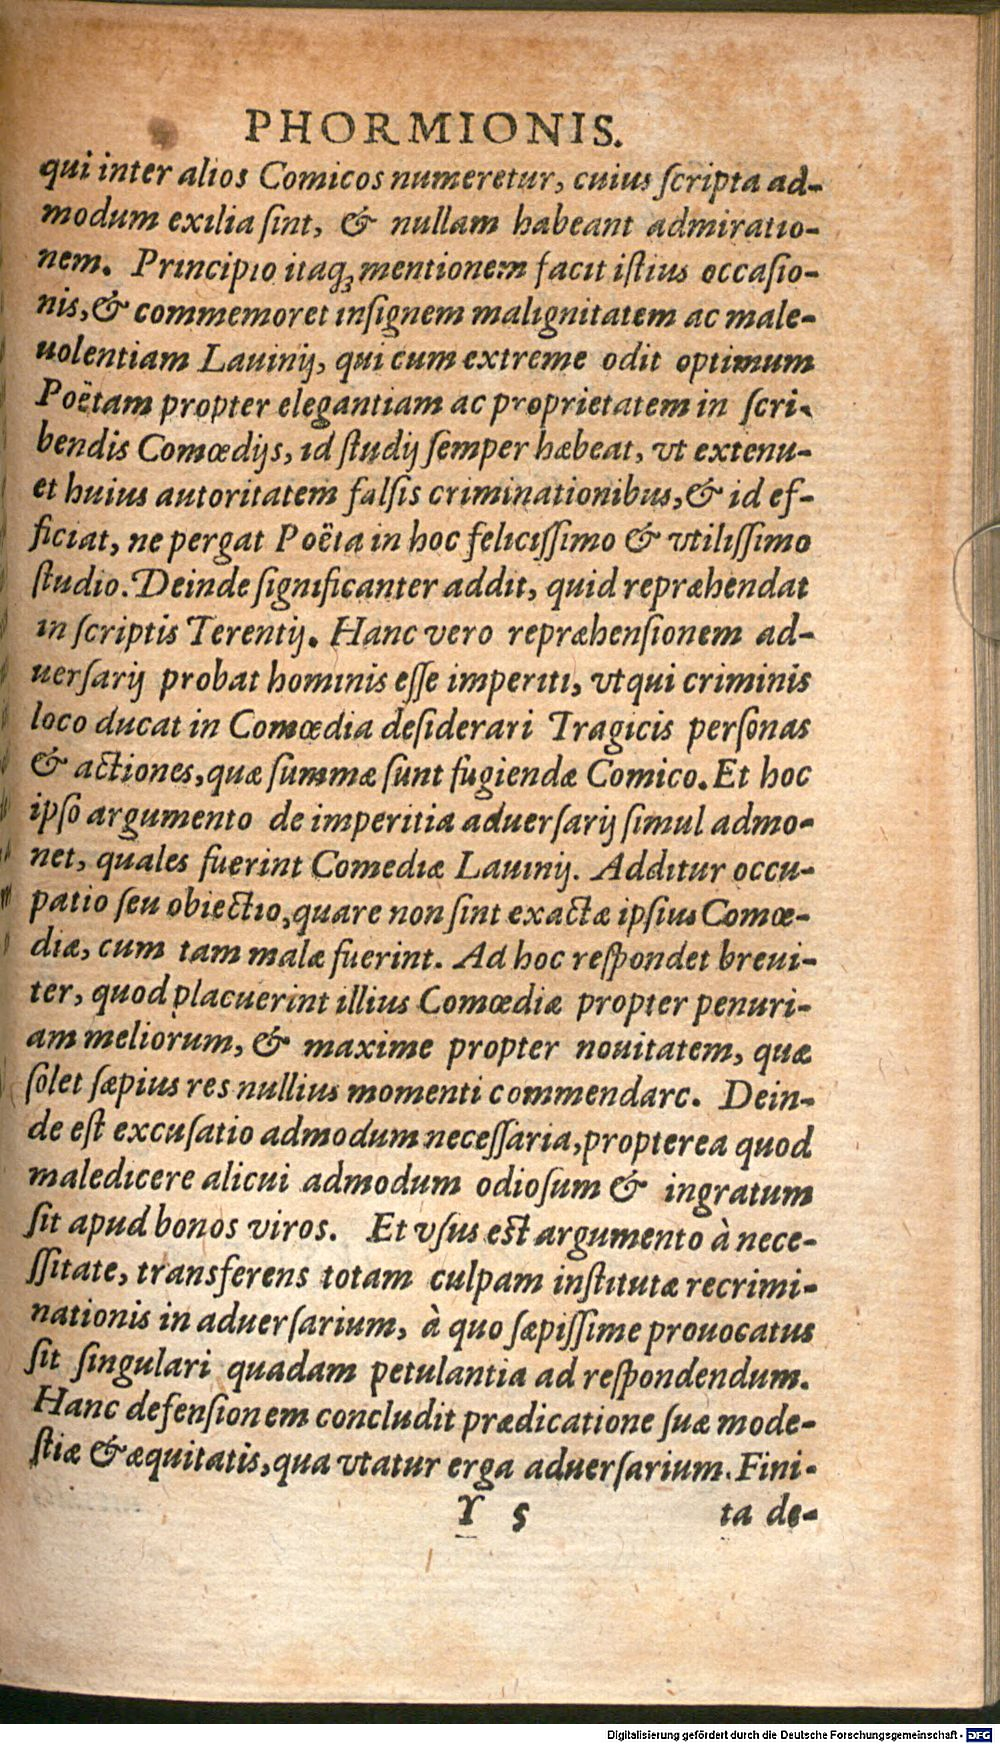 PHORMIONIS.
qui inter alios Comicos numeretur, cuius ſcripta ad-
modum exilia ſint, & nullam habeant admiratio-
nem. Principio itaqꝫ mentionem facit iſtius occaſio-
nis, & commemoret inſignem malignitatem ac male-
uolentiam Lauinij, qui cum extreme odit optimum
Poëtam propter elegantiam ac proprietatem in ſcri-
bendis Comœdijs, id ſtudij ſemper hæbeat, vt extenu-
et huius autoritatem falſis criminationibus, & id ef-
ficiat, ne pergat Poëta in hoc feliciſſimo & vtiliſſimo
ſtudio. Deinde ſignificanter addit, quid repræhendat
in ſcriptis Terentij. Hanc vero repræhenſionem ad-
uerſarij probat hominis eſſe imperiti, vt qui criminis
loco ducat in Comœdia deſiderari Tragicis perſonas
& actiones, quæ ſummæ ſunt fugiendæ Comico. Et hoc
ipſo argumento de imperitia aduerſarij ſimul admo-
net, quales fuerint Comediæ Lauinij. Additur occu-
patio ſeu obiectio, quare non ſint exactæ ipſius Comœ-
diæ, cum tam malæ fuerint. Ad hoc reſpondet breui-
ter, quod placuerint illius Comœdiæ propter penuri-
am meliorum, & maxime propter nouitatem, quæ
ſolet ſæpius res nullius momenti commendarc. Dein-
de eſt excuſatio admodum neceſſaria, propterea quod
maledicere alicui admodum odioſum & ingratum
ſit apud bonos viros. Et vſus eſt argumento à nece-
ſſitate, transferens totam culpam inſtitutæ recrimi-
nationis in aduerſarium, à quo ſæpiſſime prouocatus
ſit ſingulari quadam petulantia ad reſpondendum.
Hanc defenſionem concludit prædicatione ſuæ mode-
ſtiæ & æquitatis, qua vtatur erga aduerſarium. Fini-
Y 5 ta de-
Digitalisierung gefördert durch die Deutsche Forschungsgemeinschaft - DFG